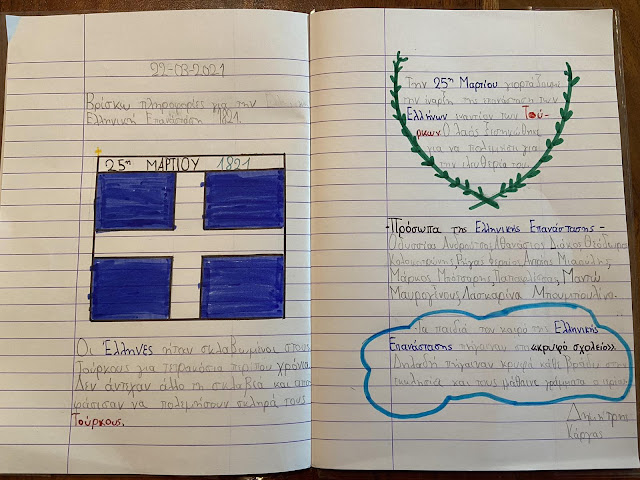 22-03-2021
Βρίσκω πληροφορίες για την
Ελληνική Επανάσταση 1821.
25η ΜΑΡΤΙΟΥ 1821
Οι Έλληνες ήταν σκλαβωμένοι στους
Τούρκους για τετρακόσια περίπου χρόνια.
Δεν άντεχαν άλλο τη σκλαβιά και απο-
φάσισαν να πολεμήσουν σκληρά τους
Τούρκους.
Την 25η Μαρτίου γιορτάζουμε
την έναρξη της επανάσταση των
Ελλήνων εναντίον των Τού-
ρκων. Ο λαός ξεσηκώθηκε
για να πολεμήσει για
την ελευθερία του.
-Πρόσωπα της Ελληνικής Επανάστασης-
Οδυσσέα Ανδρούτσο, Αθανάσιος Διάκος, Θεόδωρος
Κολοκοτρώνης, Ρήγας Φεραίος, Ανδρέας Μιαούλης,
Μάρκος Μπότσαρης, Παπαφλέσσας, Μαντώ
Μαυρογένους, Λασκαρίνα Μπουμπουλίνα.
-Τα παιδιά τον καιρό της Ελληνικής
Επανάστασης πήγαιναν στο «κρυφό σχολειό».
Δηλαδή πήγαιναν κρυφά κάθε βράδυ στην
εκκλησία και τους μάθαινε γράμματα ο
Δημήτρης
Κάργας